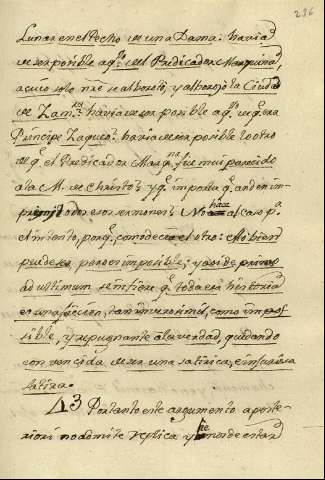 286
Lunar en el Pecho de una Dama: havia d
de ser posible aq.^llo del Predicador Marquina,
a cuio solo nõe se alborotó, y alborozó la Ciudad
de Zam.^ra havia de ser posible aq.^llo de q. era
Principe Zaqueo: havia de ser posible lo otro
de q. el Predicador Marq.^na fue mui parecido
a la M. de Christo: y q. importa q. anden im-
todos esos sermones? No hace al caso p.^a
el intento, porq. como decia el otro: Mi bien
puede ser, pero es imposible; y asi de primo
ad ultimum se infiere q. toda esa historia
es una ficcion, tan inverosimil, como impo-
sible, y repugnante a la verdad, quedando
convencida de ser una satirica, e infuriosa
satira.
13 Portanto este argumento a poste-
riori no admite replica y me de estar